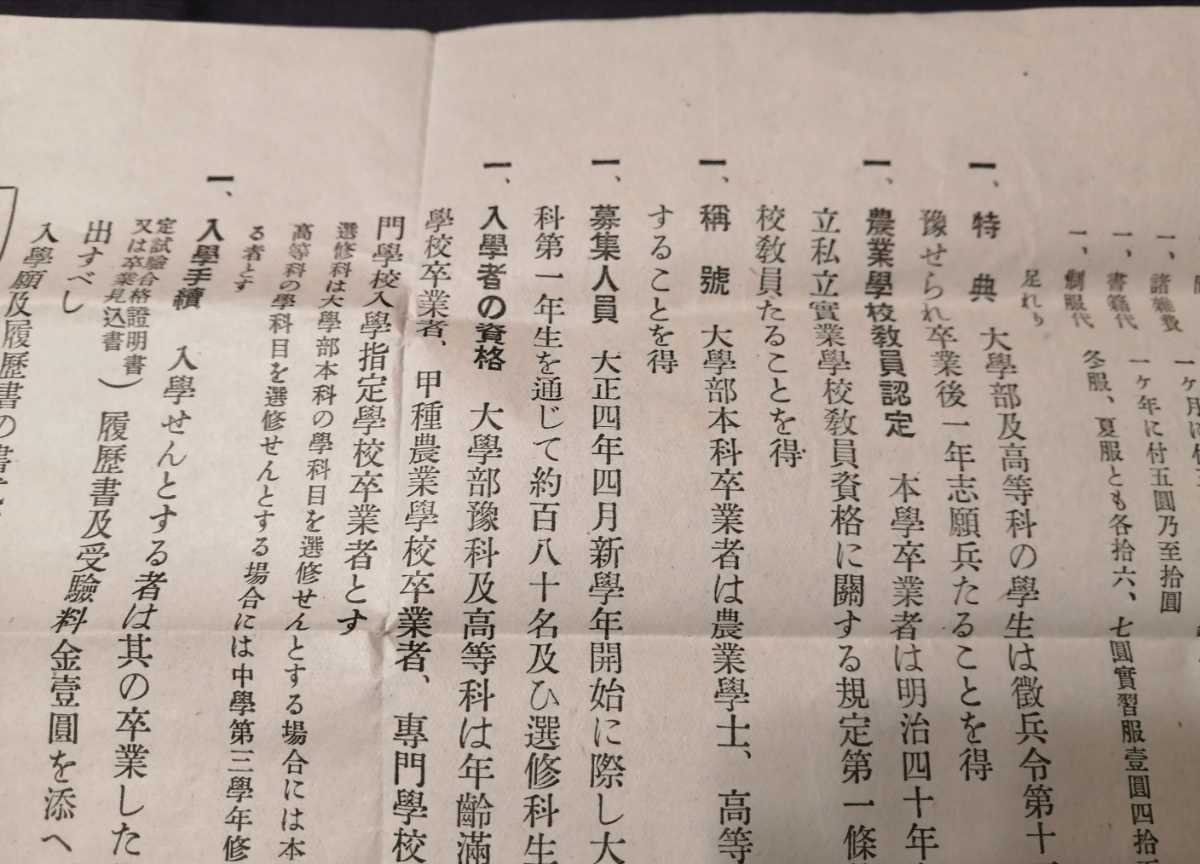 一、諸雜費 一ケ年に付五圓乃至拾圓
一、書籍代
一、制服代 冬服、夏服とも各拾六、七圓實習服壹圓四拾
足れり
一、特典 大學部及高等科の學生は徴兵令第十
豫せられ卒業後一年志願兵たることを得
一、農業學校教員認定 本學卒業者は明治四十年
立私立實業學校教員資格に關する規定第一條
校教員たることを得
一、稱號 大學部本科卒業者は農業學士、高等
することを得
一、募集人員 大正四年四月新學年開始に際し大
科第一年生を通じて約百八十名及ひ選修科生
一、入學者の資格 大學部豫科及高等科は年齡滿
學校卒業者、甲種農業學校卒業者、專門學校
門學校入學指定學校卒業者とす
選修科は大學部本科の學科目を選修せんとする場合には本
高等科の學科目を選修せんとする場合には中學第三學年修
る者とす
一、入學手續 入學せんとする者は其の卒業した
定試驗合格證明書
又は卒業見込書
）履歷書及受驗料金壹圓を添へ
出すべし
入學願及履歷書の書式